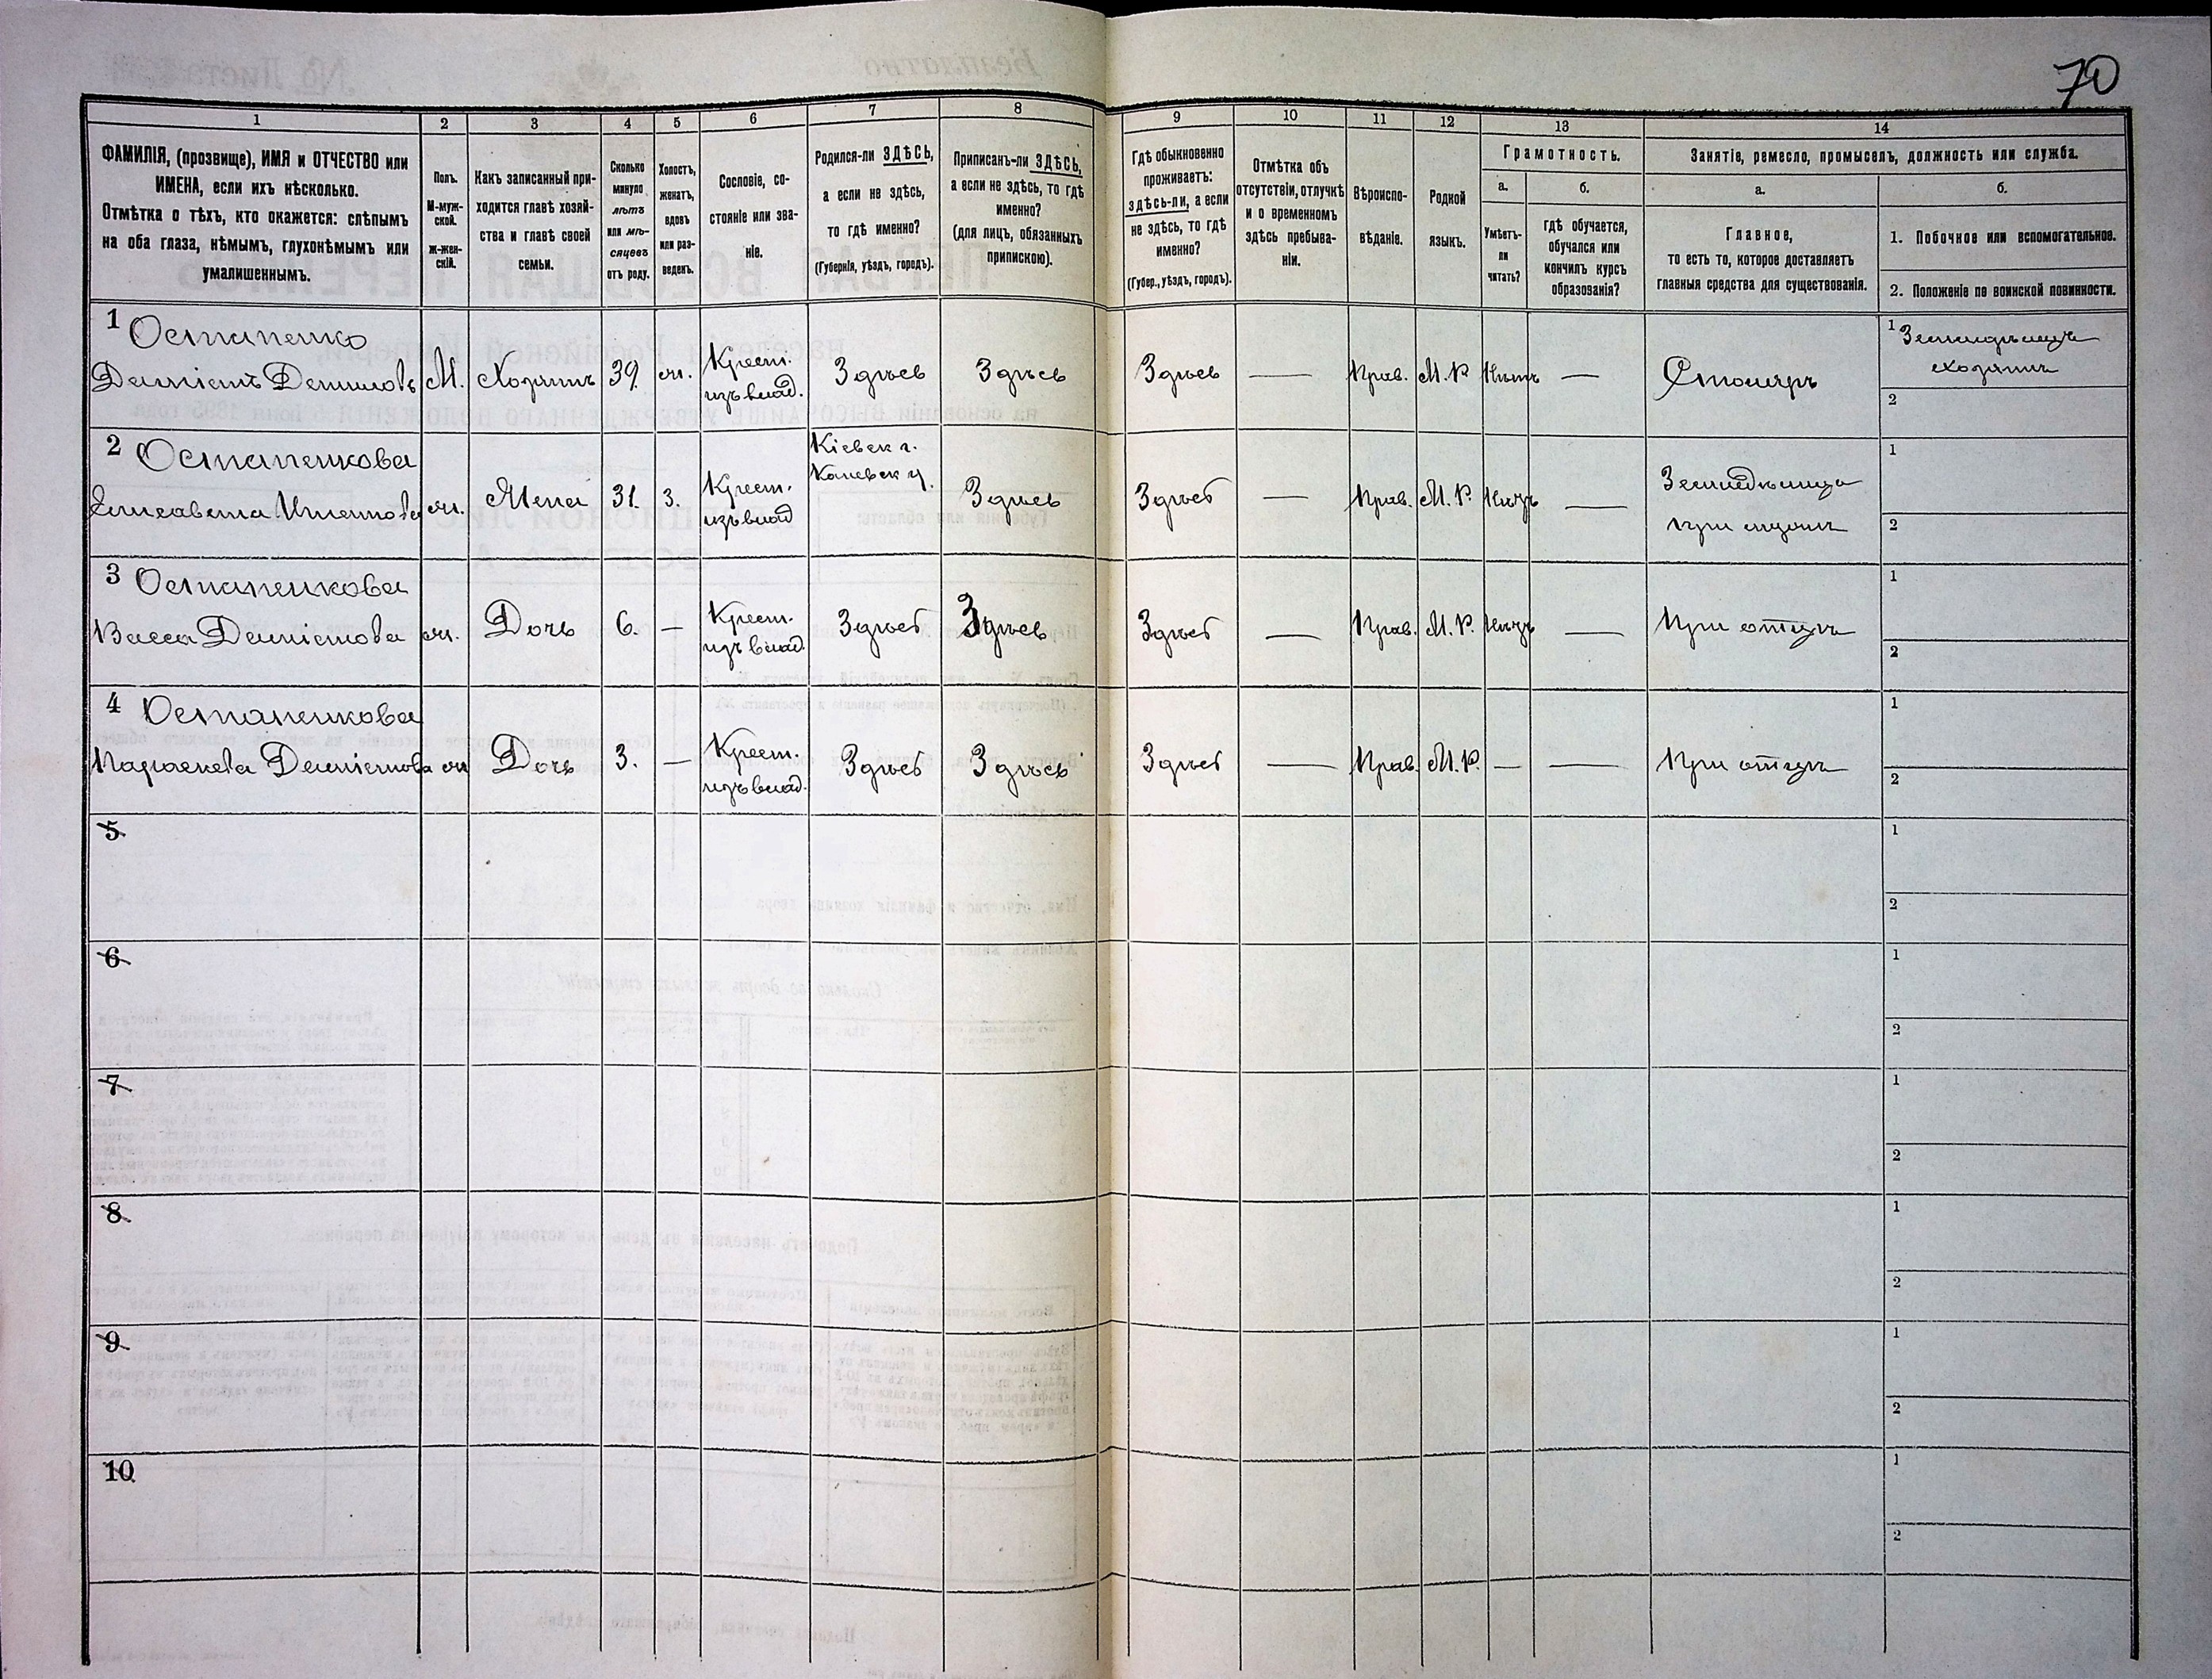 70
1
2
3
4
5
6
7
8
9
10
11
12
13
14
ФАМИЛІЯ, (прозвище), ИМЯ и ОТЧЕСТВО или
ИМЕНА, если ихъ нѣсколько.
Отмѣтка о тѣхъ, кто окажется: слѣпымъ
на оба глаза, нѣмымъ, глухонѣмымъ или
умалишеннымъ.
Полъ.
М-муж-
ской.
Ж-жен-
скій.
Какъ записанный при-
ходится главѣ хозяй-
ства и главѣ своей
семьи.
Сколько
минуло
лѣтъ
или мѣ-
сяцевъ
отъ роду.
Холостъ,
женатъ,
вдовъ
или раз-
веденъ.
Сословіе, со-
стояніе или зва-
ніе.
Родился-ли ЗДѢСЬ,
а если не здѣсь,
то гдѣ именно?
(Губернія, уѣздъ, городъ).
Приписанъ-ли ЗДѢСЬ,
а если не здѣсь, то гдѣ
именно?
(для лицъ, обязанныхъ
припискою).
Гдѣ обыкновенно
проживаетъ:
здѣсь-ли, а если
не здѣсь, то гдѣ
именно?
(Губер., уѣздъ, городъ).
Отмѣтка объ
отсутствіи, отлучкѣ
и о временномъ
здѣсь пребыва-
ніи.
Вѣроиспо-
вѣданіе.
Родной
языкъ.
Грамотность.
а.
Умѣетъ-
ли
читать?
б.
гдѣ обучается,
обучался или
кончилъ курсъ
образованія?
Занятіе, ремесло, промыселъ, должность или служба.
а.
Главное,
то есть то, которое доставляетъ
главныя средства для существованія.
б.
1. Побочное или вспомогательное.
2. Положеніе по воинской повинности.
1 Остапенко
Даміанъ Даниловъ М. Хозяинъ 39. ж. Крест. изъ влад. Здѣсь Здѣсь Здѣсь — Прав. М. Р. Нѣтъ — Столяръ
1 Земледѣлецъ
хозяинъ
2
2 Остапенкова
Елисавета Игнатова ж. Жена 31. з. Крест. изъ влад Кіевск г. Каневск у. Здѣсь Здѣсь — Прав. М. Р. Нѣтъ — Земледѣлица при мужѣ
1
2
3 Остапенкова
Васса Даміанова ж. Дочь 6. — Крест. изъ влад. Здѣсь Здѣсь Здѣсь — Прав. М. Р. Нѣтъ — При отцѣ
1
2
4 Остапенкова
Параскева Даміанова ж Дочь 3. — Крест. изъ влад. Здѣсь Здѣсь Здѣсь — Прав. М. Р. — — При отцѣ
1
2
5
1
2
6
1
2
7
1
2
8
1
2
9
1
2
10
1
2